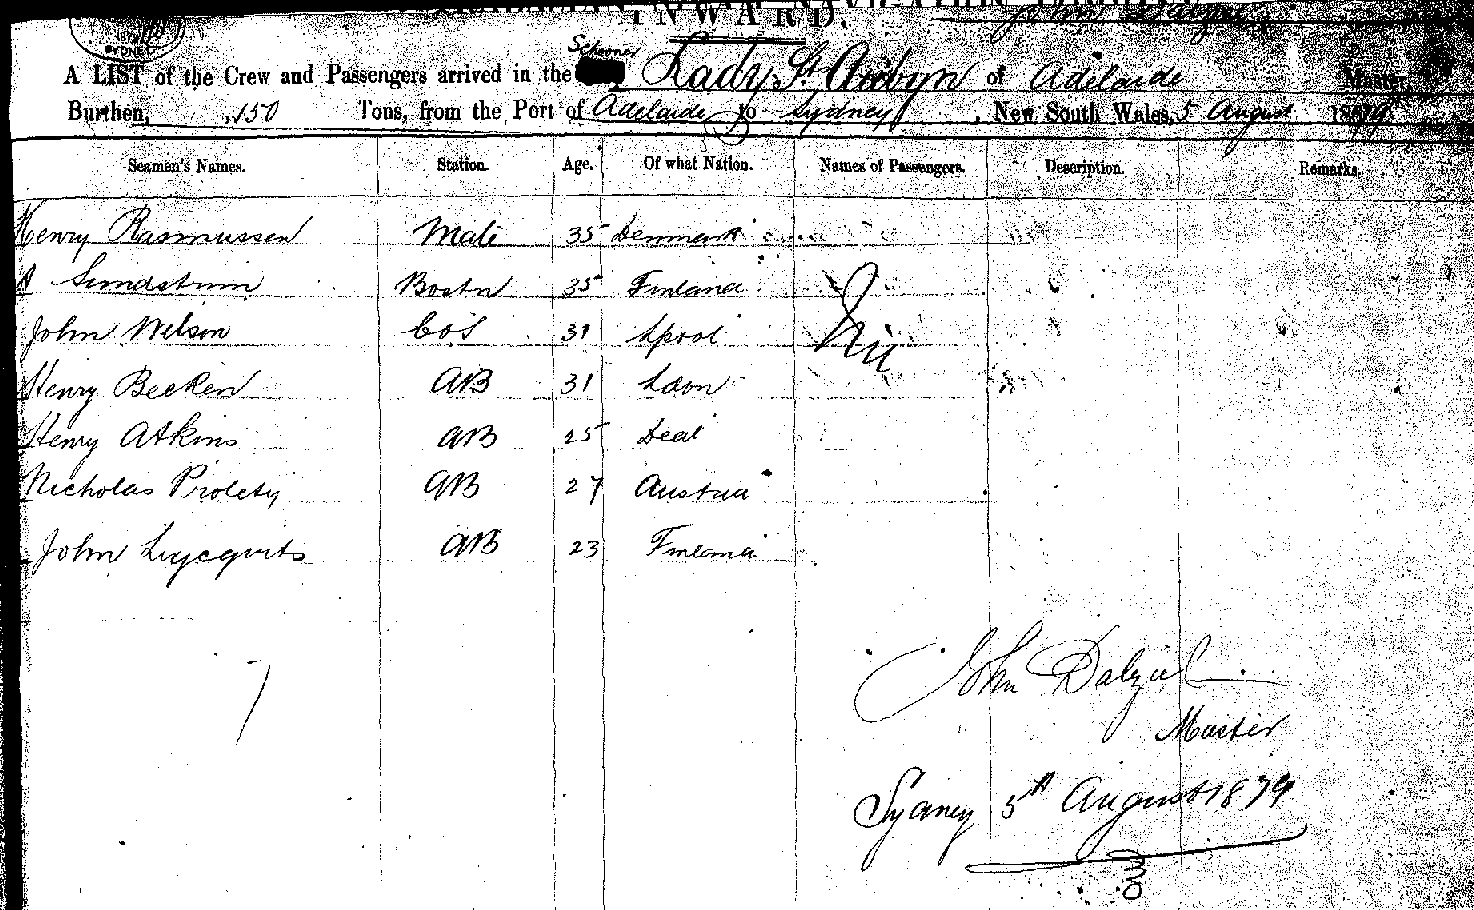 INWARD.
SYDNEY
John Dalziel
Schooner
A LIST of the Crew and Passengers arrived in the Lady St Aubyn of Adelaide Master,
Burthen, 150 Tons, from the Port of Adelaide to Sydney, New South Wales, 5 August 1879
Seamen's Names. Station. Age. Of what Nation. Names of Passengers. Description. Remarks.
Henry Rasmussen Mate 35 Denmark
A Sundstrum Bostn 35 Finland
John Wilson C&S 31 Lpool Nil
Henry Becken AB 31 Ldon
Henry Atkins AB 25 Deal
Nicholas AB 27 Austria
John AB 23 Finland
7
John Dalziel
Master
Sydney 5th August 1879